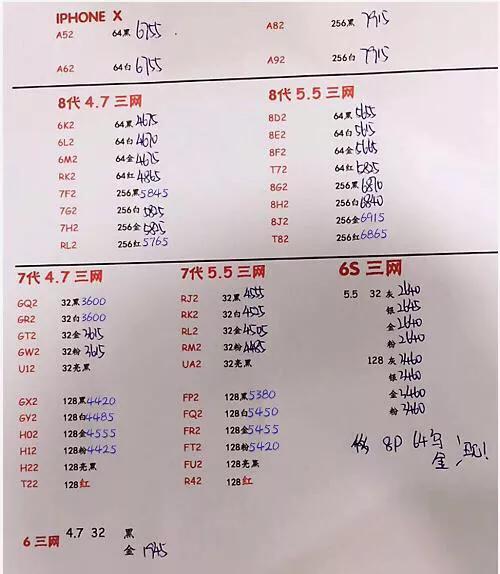 IPHONE X
A52 64黑 6755
A62 64白 6755
A82 256黑 7915
A92 256白 7915
8代 4.7 三网
6K2 64黑 4675
6L2 64白 4670
6M2 64金 4675
RK2 64红 4865
7F2 256黑 5845
7G2 256白 5825
7H2 256金 5825
RL2 256红 5765
8代 5.5 三网
8D2 64黑 5655
8E2 64白 5615
8F2 64金 5665
T72 64红 5825
8G2 256黑 6870
8H2 256白 6840
8J2 256金 6915
T82 256红 6865
7代 4.7 三网
GQ2 32黑 3600
GR2 32白 3600
GT2 32金 3615
GW2 32粉 3615
U12 32亮黑
GX2 128黑 4420
GY2 128白 4485
H02 128金 4555
H12 128粉 4425
H22 128亮黑
T22 128红
7代 5.5 三网
RJ2 32黑 4555
RK2 32白 4525
RL2 32金 4505
RM2 32粉 4485
UA2 32亮黑
FP2 128黑 5380
FQ2 128白 5450
FR2 128金 5455
FT2 128粉 5420
FU2 128亮黑
R42 128红
6S 三网
5.5 32 灰 2640
银 2645
金 2640
粉 2640
128 灰 3460
银 3460
金 3460
粉 3460
8P 64
金 现!
6 三网 4.7 32 黑
金 1945